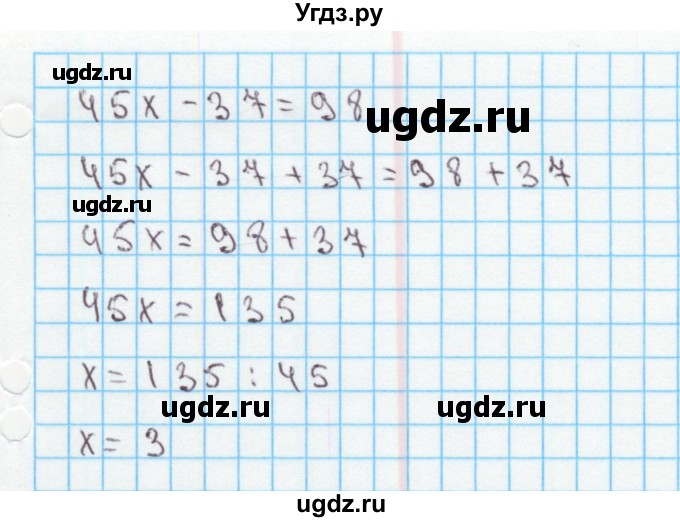 Угдз.ру
ugdz.ru
45x - 37 = 98
ugdz.ru
45x - 37 + 37 = 98 + 37
ugdz.ru
45x = 98 + 37
45x = 135
x = 135 : 45
ugdz.ru ugdz.ru
x = 3
ugdz.ru